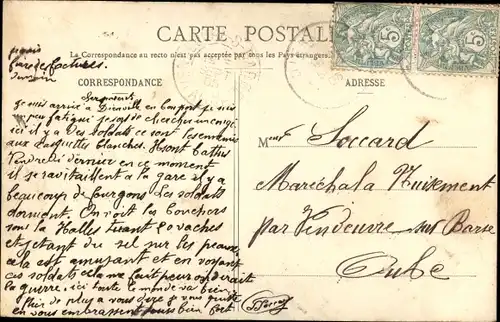 CARTE POSTALE
La Correspondance au recto n'est pas acceptée par tous les Pays étrangers.
CORRESPONDANCE
ADRESSE
5
5
faire des factures
je suis arrivé a Dienville en
peu fatigué je
ici il y a Des soldats ce sont les ennemis
aux casquettes blanches ils sont battis
Vendredi dernier en ce moment
il se ravitaillent a la gare il y a
beaucoup de fourgons Les soldats
dorment. On voit les bouchers
sous la Halles tuant 6 vaches
et jetant du sel sur les peaux
cela est amusant et en voyant
ces soldats cela me fait peur on dirait
la guerre. ici toute le monde va bien
plus de place a vous dire je vous quitte
en vous embrassant tous bien fort
Mme Soccard
Maréchal a Huisement
par Vendeuvre sur Barse
Aube